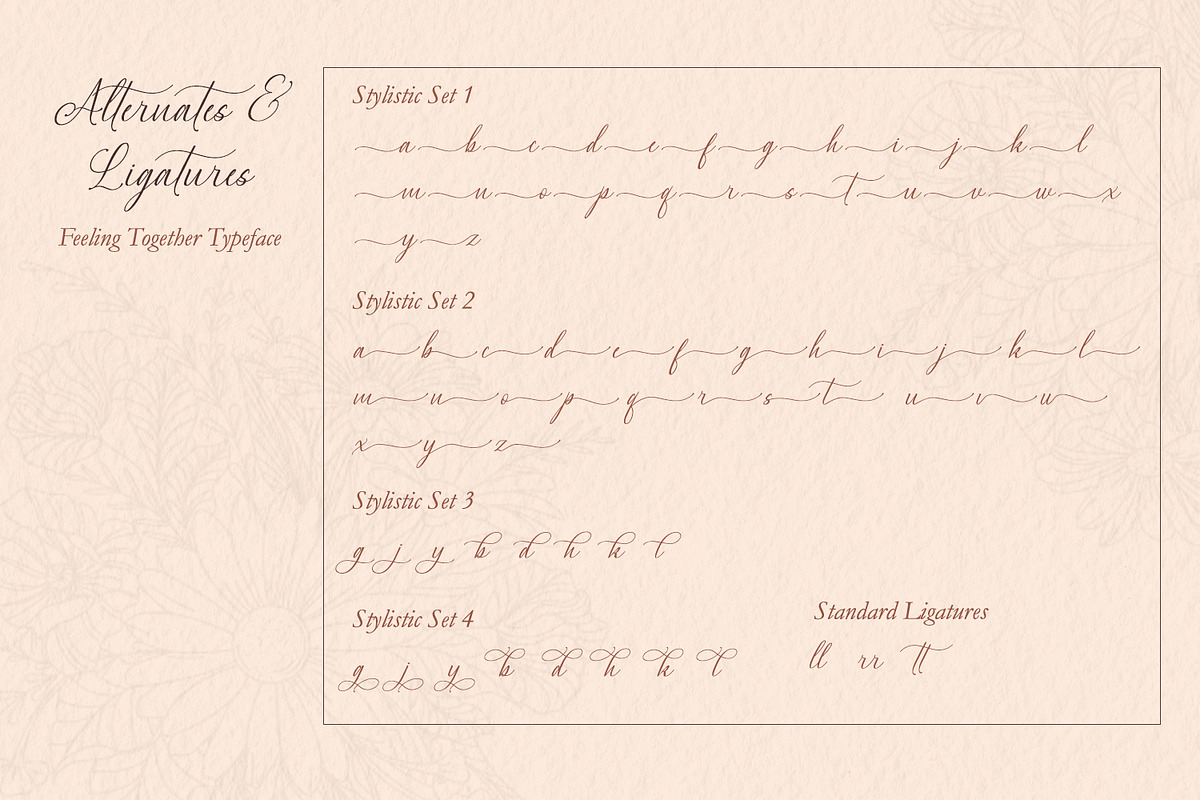 Alternates &
Ligatures
Feeling Together Typeface
Stylistic Set 1
a b c d e f g h i j k l
m n o p q r s t u v w x
y z
Stylistic Set 2
a b c d e f g h i j k l
m n o p q r s t u v w
x y z
Stylistic Set 3
g j y b d h k l
Stylistic Set 4
g j y b d h k l
Standard Ligatures
ll rr tt